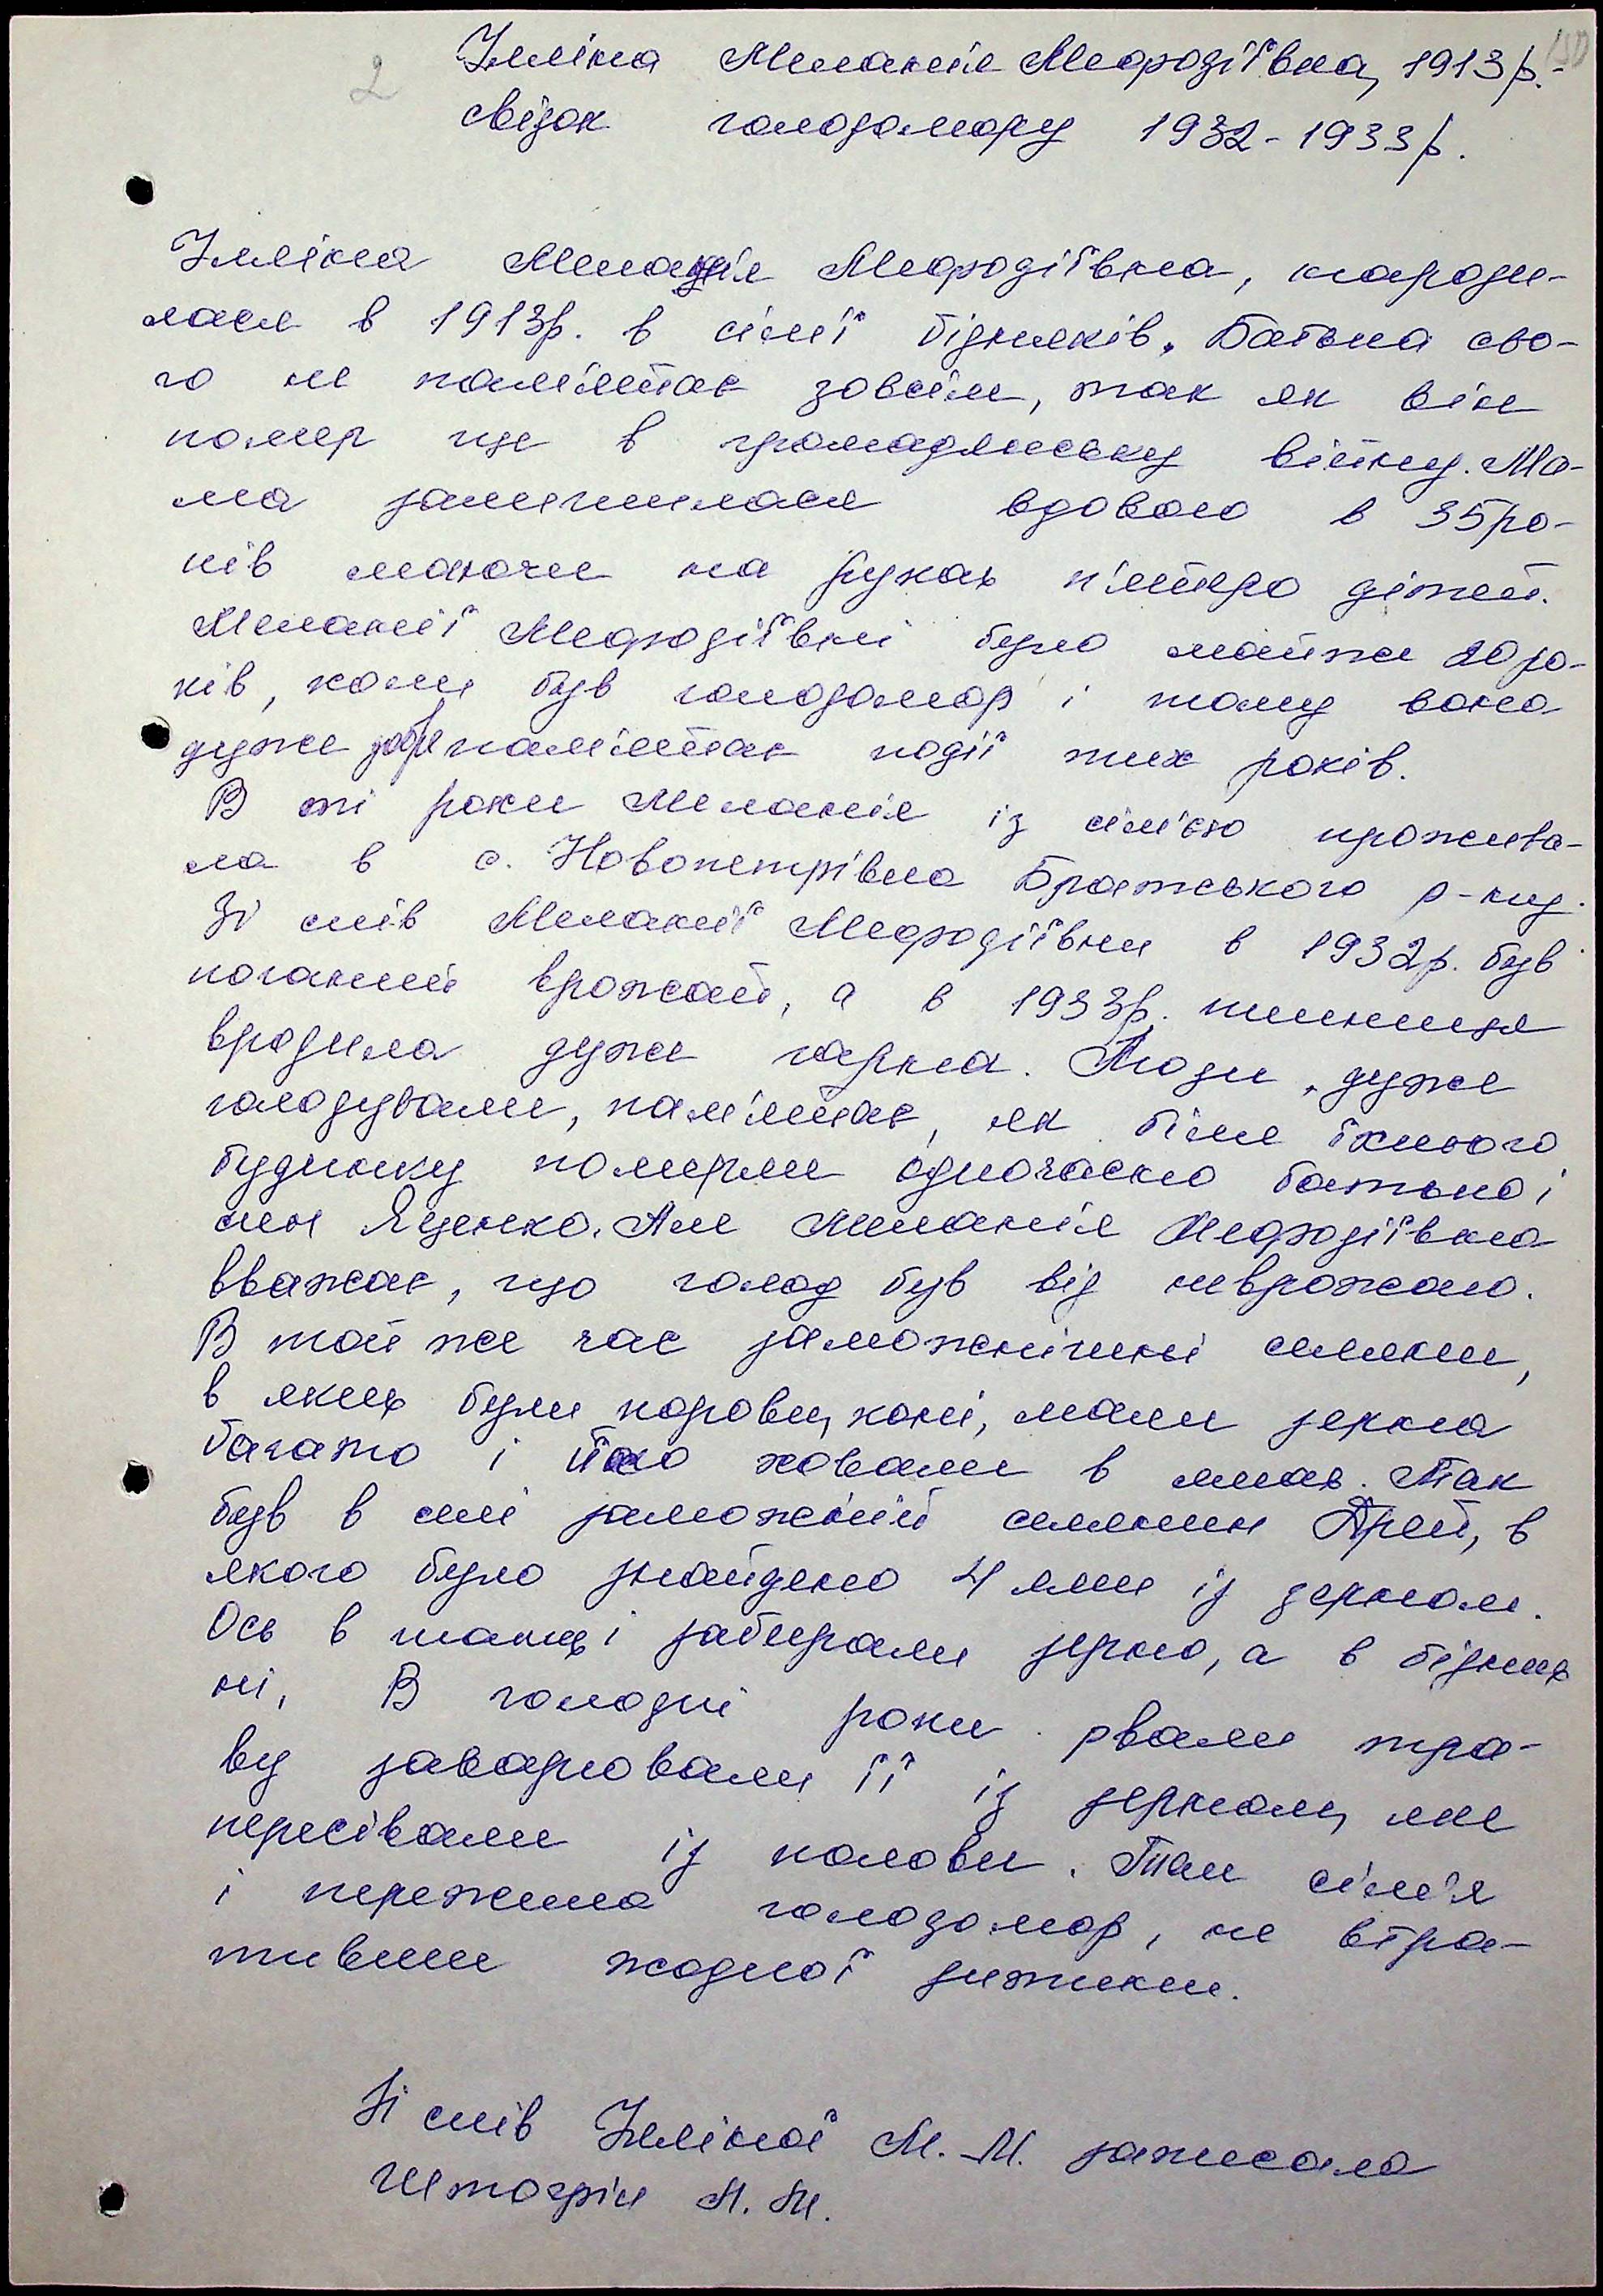 2
150
Ілліна Меланія Мефодіївна, 1913 р.-
свідок голодомору 1932-1933 р.
Ілліна Меланія Мефодіївна, народи-
лася в 1913р. в сім'ї бідняків. Батька сво-
го не пам'ятає зовсім, так як він
помер ще в громадянську війну. Ма-
ма залишилася вдовою в 35 ро-
ків маючи на руках п'ятеро дітей.
Меланії Мефодіївні було майже 20 ро-
ків, коли був голодомор і тому вона
дуже добре пам'ятає події тих років.
В ті роки Меланія із сім'єю прожива-
ла в с. Новопетрівка Братського р-ну.
Зі слів Меланії Мефодіївни в 1932р. був
поганий врожай, а в 1933р. пшениця
вродила дуже гарна. Люди дуже
голодували, пам'ятає, як біля їхнього
будинку померли одночасно батько і
син Яценко. Але Меланія Мефодіївна
вважає, що голод був від неврожаю.
В той же час заможніші селяни,
в яких були корови, коні, мали зерна
багато і його ховали в ямах. Так
був в селі заможній селянин Трей, в
якого було знайдено 4 ями із зерном.
Ось в таких і забирали зерно, а в бідних
ні. В голодні роки рвали тра-
ву заварювали її із зерном, яке
пересівали із полови. Так сім'я
і пережила голодомор, не втра-
тивши жодної дитини.
Зі слів Ілліної М. М. записала
Штогрін Л. М.